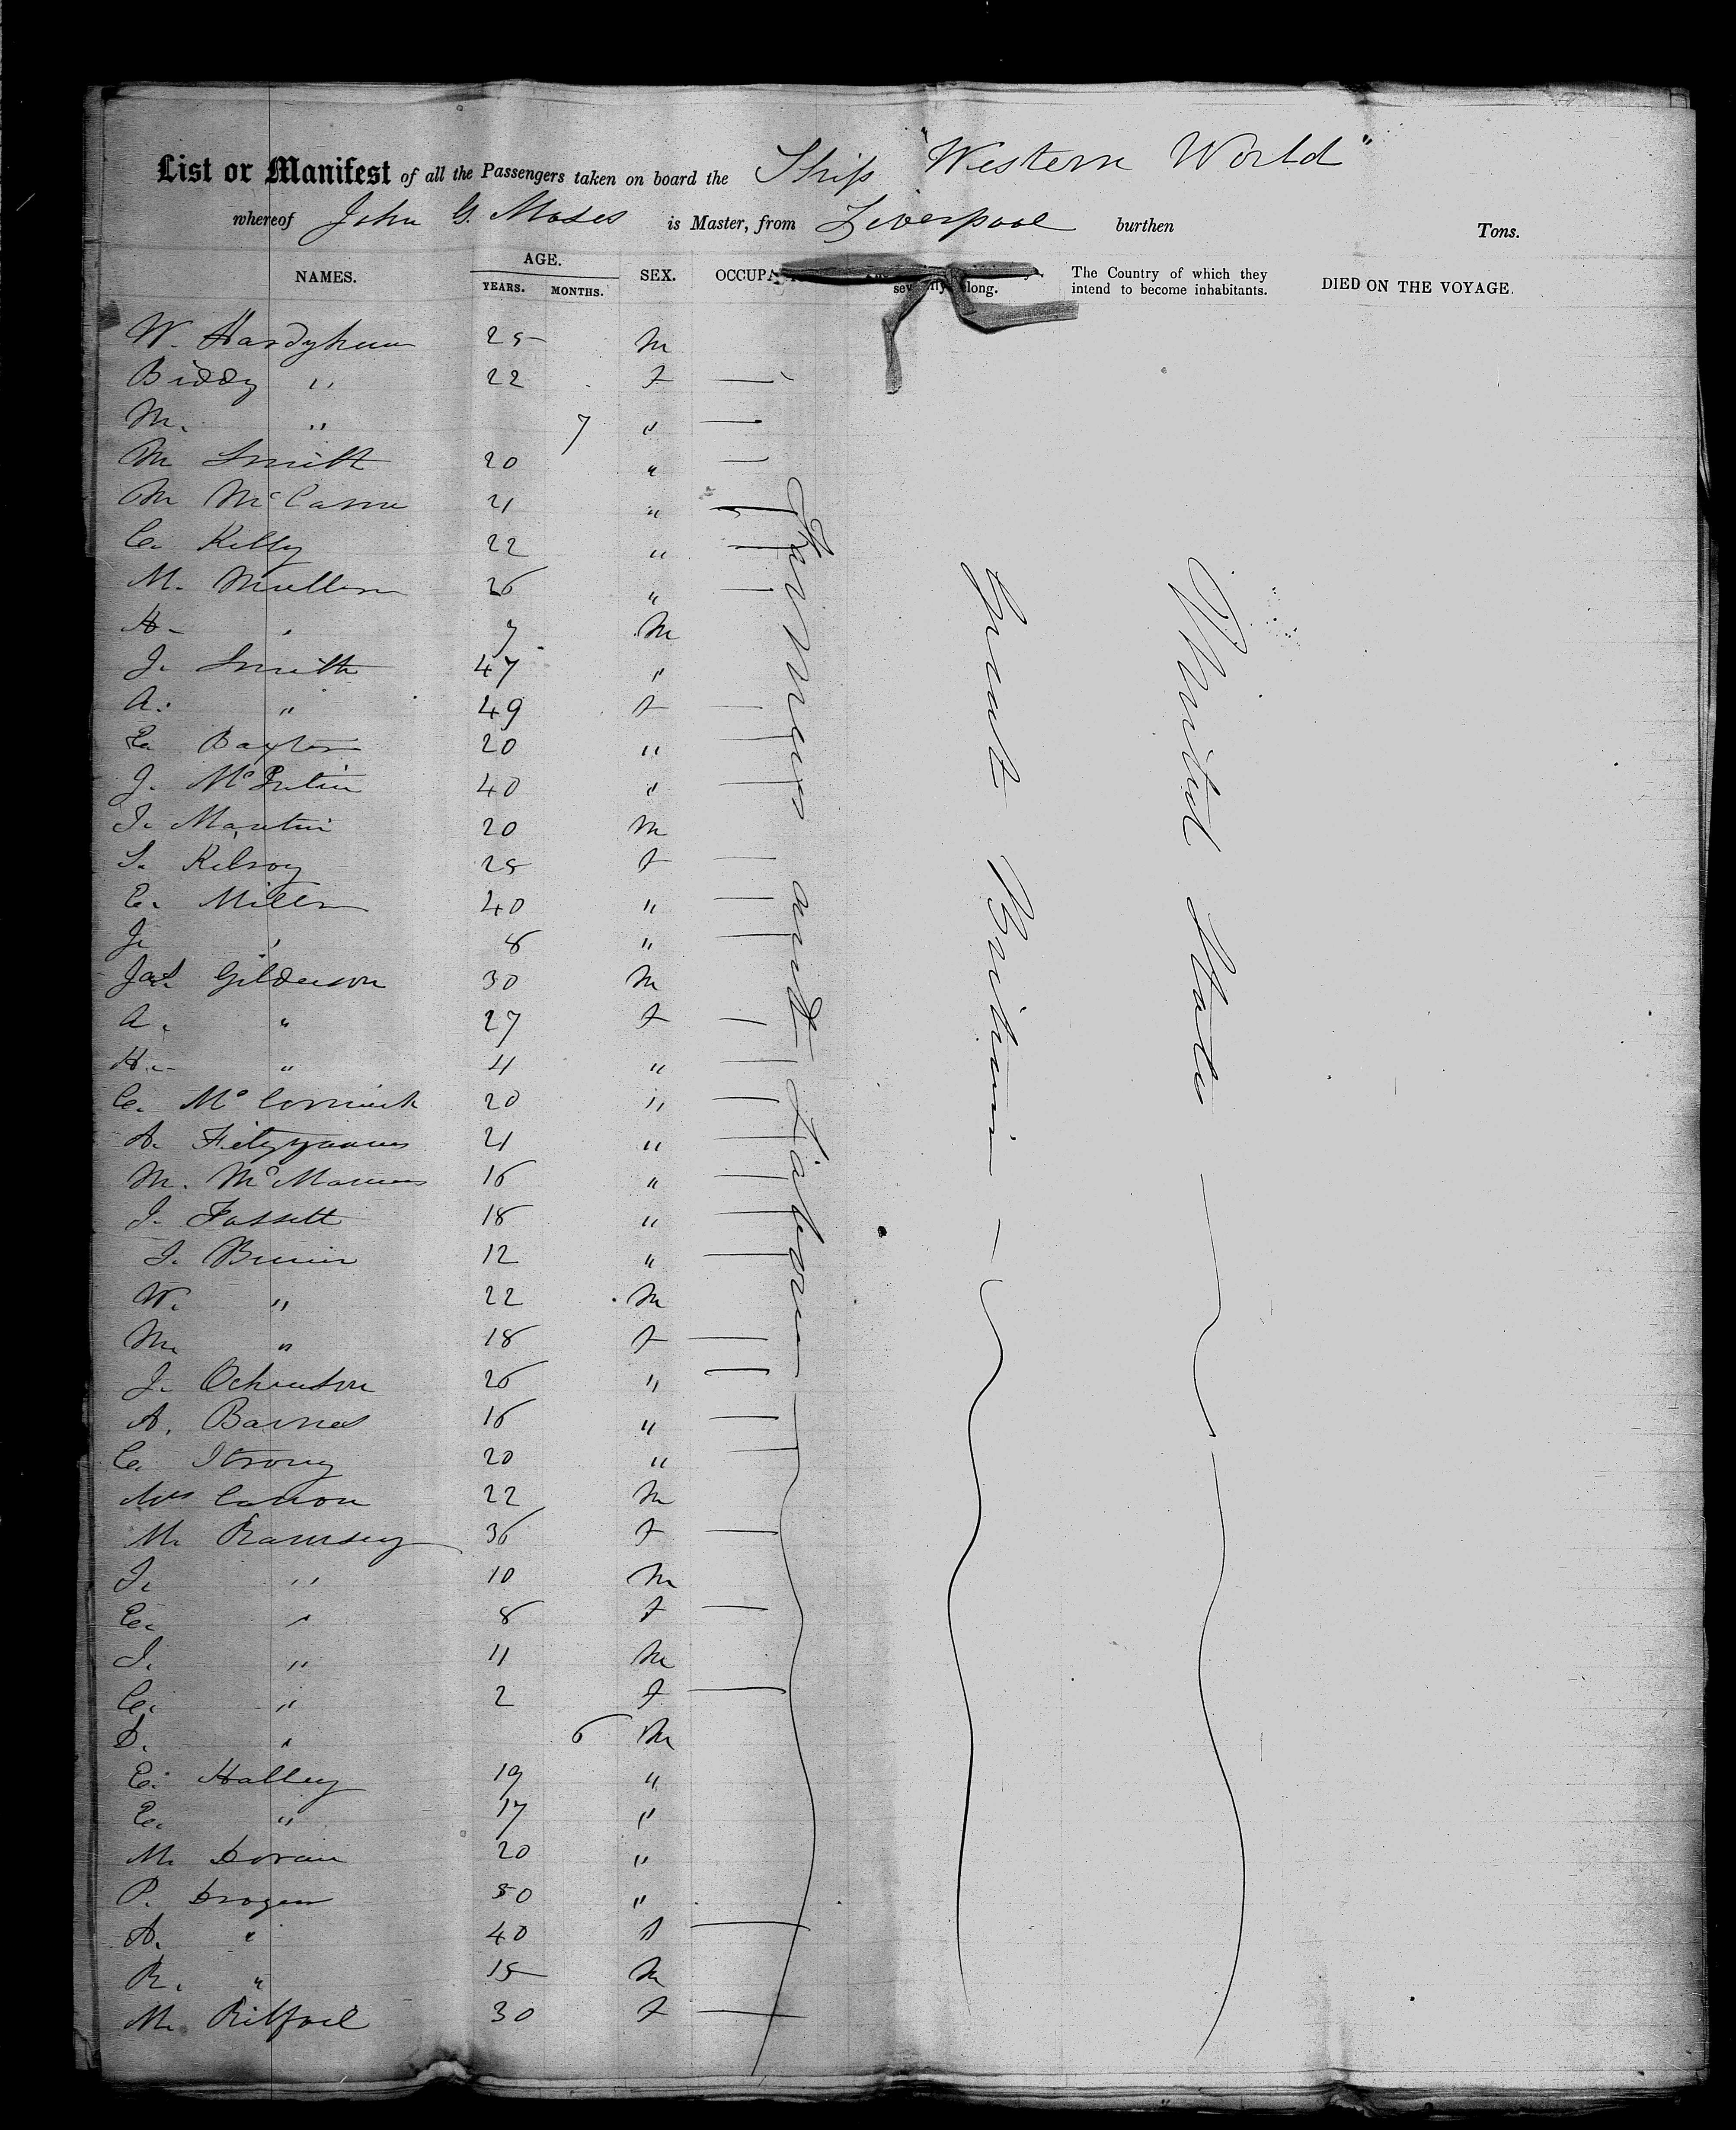 List or Manifest of all the Passengers taken on board the Ship "Western World"
whereof John G. Moses is Master, from Liverpool burthen Tons.
NAMES. AGE. YEARS. MONTHS. SEX. OCCUPA long. The Country of which they intend to become inhabitants. DIED ON THE VOYAGE.
W. 25 M
Biddy " 22 f
M. " 7 "
M Smith 20 "
M McCann 21 "
C. Kelly 22 "
M. Mullen 26 "
H. " 7 M
J. Smith 47 "
A. " 49 f
E. Baxter 20 "
J. 40 "
J. Martin 20 M
S. Kilroy 25 f
E. Miller 40 "
J. " 8 "
Jas. Gilderson 30 M
A. " 27 f
H. " 4 "
C. McCormick 20 "
A. 21 "
M. McManus 16 "
J. Fassett 18 "
J. 12 "
W. " 22 M
M. " 18 f
J. 26 "
A. Barnes 16 "
C. Strong 20 "
22 M
M. Ramsey 36 f
J. " 10 M
E. " 8 f
J. " 11 M
C. " 2 f
D. " 6 M
E. Halley 19 "
E. " 17 "
M. Doran 20 "
P. Drogen 50 "
A. " 40 f
R. " 15 M
M. 30 f
Farmers and Laborers
Great Britain
United States